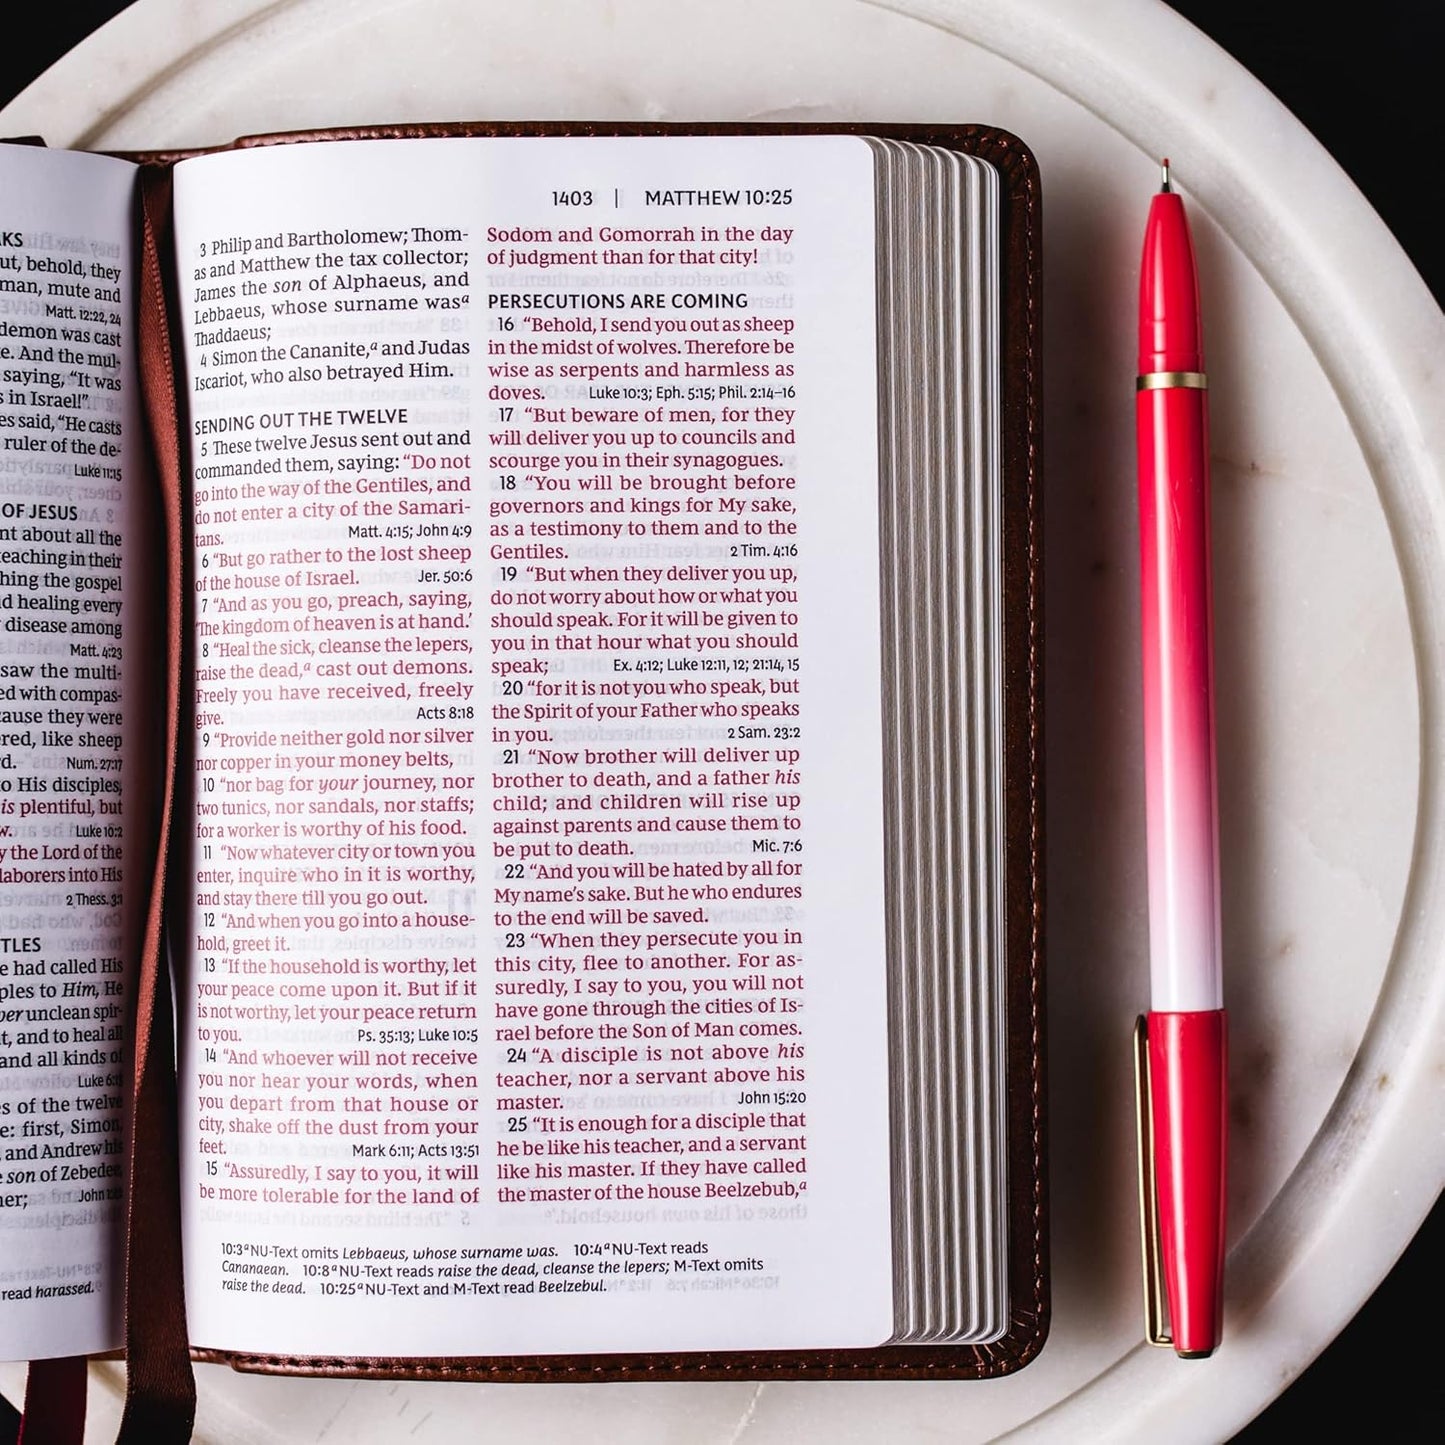 AKS
ut, behold, they
man, mute and
Matt. 12:22, 24
demon was cast
e. And the mul-
saying, “It was
s in Israel!”
es said, “He casts
ruler of the de-
Luke 11:15
OF JESUS
nt about all the
teaching in their
hing the gospel
d healing every
disease among
Matt. 4:23
saw the multi-
ed with compas-
cause they were
ered, like sheep
d. Num. 27:17
o His disciples,
is plentiful, but
w. Luke 10:2
y the Lord of the
laborers into His
2 Thess. 3:1
TLES
e had called His
ples to Him, He
er unclean spir-
t, and to heal all
and all kinds of
Luke 6:13
s of the twelve
e: first, Simon,
and Andrew his
son of Zebedee,
her; John
read harassed.
1403 | MATTHEW 10:25
3 Philip and Bartholomew; Thom-
as and Matthew the tax collector;
James the son of Alphaeus, and
Lebbaeus, whose surname wasᵃ
Thaddaeus;
4 Simon the Cananite,ᵃ and Judas
Iscariot, who also betrayed Him.
SENDING OUT THE TWELVE
5 These twelve Jesus sent out and
commanded them, saying: “Do not
go into the way of the Gentiles, and
do not enter a city of the Samari-
tans. Matt. 4:15; John 4:9
6 “But go rather to the lost sheep
of the house of Israel. Jer. 50:6
7 “And as you go, preach, saying,
‘The kingdom of heaven is at hand.’
8 “Heal the sick, cleanse the lepers,
raise the dead,ᵃ cast out demons.
Freely you have received, freely
give. Acts 8:18
9 “Provide neither gold nor silver
nor copper in your money belts,
10 “nor bag for your journey, nor
two tunics, nor sandals, nor staffs;
for a worker is worthy of his food.
11 “Now whatever city or town you
enter, inquire who in it is worthy,
and stay there till you go out.
12 “And when you go into a house-
hold, greet it.
13 “If the household is worthy, let
your peace come upon it. But if it
is not worthy, let your peace return
to you. Ps. 35:13; Luke 10:5
14 “And whoever will not receive
you nor hear your words, when
you depart from that house or
city, shake off the dust from your
feet. Mark 6:11; Acts 13:51
15 “Assuredly, I say to you, it will
be more tolerable for the land of
Sodom and Gomorrah in the day
of judgment than for that city!
PERSECUTIONS ARE COMING
16 “Behold, I send you out as sheep
in the midst of wolves. Therefore be
wise as serpents and harmless as
doves. Luke 10:3; Eph. 5:15; Phil. 2:14–16
17 “But beware of men, for they
will deliver you up to councils and
scourge you in their synagogues.
18 “You will be brought before
governors and kings for My sake,
as a testimony to them and to the
Gentiles. 2 Tim. 4:16
19 “But when they deliver you up,
do not worry about how or what you
should speak. For it will be given to
you in that hour what you should
speak; Ex. 4:12; Luke 12:11, 12; 21:14, 15
20 “for it is not you who speak, but
the Spirit of your Father who speaks
in you. 2 Sam. 23:2
21 “Now brother will deliver up
brother to death, and a father his
child; and children will rise up
against parents and cause them to
be put to death. Mic. 7:6
22 “And you will be hated by all for
My name’s sake. But he who endures
to the end will be saved.
23 “When they persecute you in
this city, flee to another. For as-
suredly, I say to you, you will not
have gone through the cities of Is-
rael before the Son of Man comes.
24 “A disciple is not above his
teacher, nor a servant above his
master. John 15:20
25 “It is enough for a disciple that
he be like his teacher, and a servant
like his master. If they have called
the master of the house Beelzebub,ᵃ
10:3 ᵃ NU-Text omits Lebbaeus, whose surname was. 10:4 ᵃ NU-Text reads
Cananaean. 10:8 ᵃ NU-Text reads raise the dead, cleanse the lepers; M-Text omits
raise the dead. 10:25 ᵃ NU-Text and M-Text read Beelzebul.